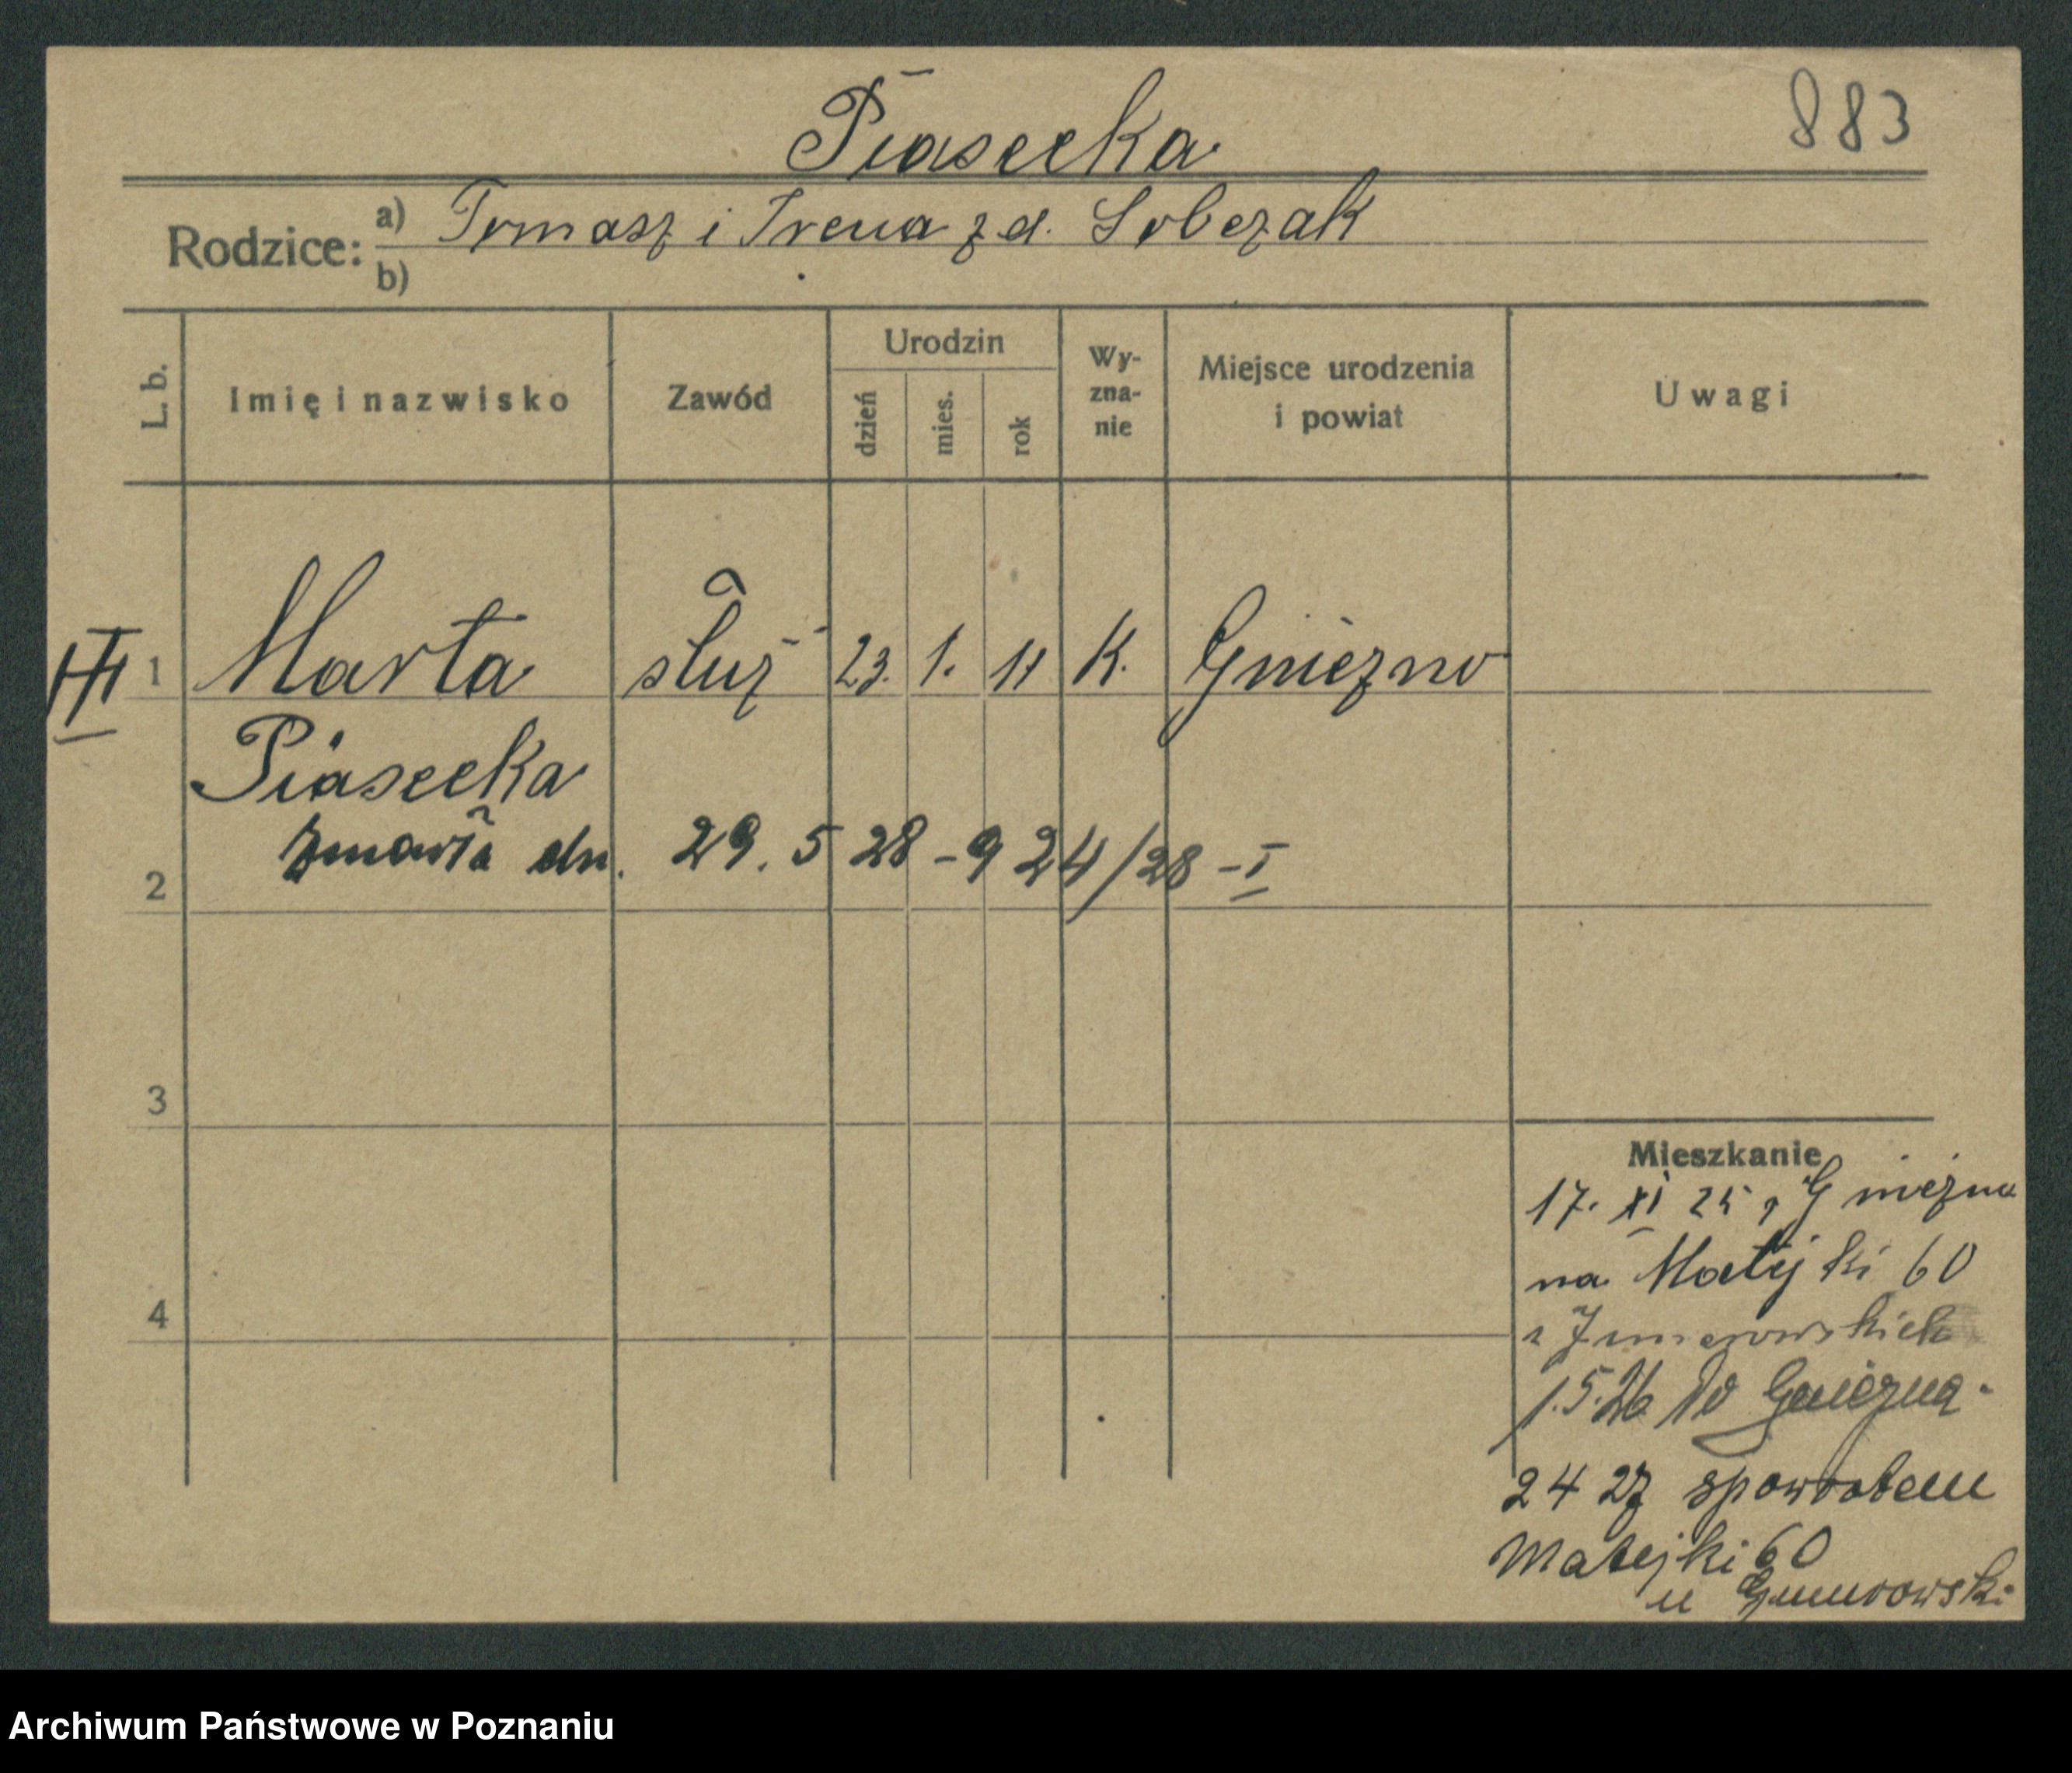 Piasecka
883
Rodzice: a) Tomasz i Irena z d. Sobczak
b)
L. b.
Imię i nazwisko
Zawód
Urodzin
dzień
mies.
rok
Wy-
zna-
nie
Miejsce urodzenia
i powiat
Uwagi
III
1 Marta służ 23. 1. 11 K. Gniezno
Piasecka
zmarła dn. 29. 5 28 - 924/28 - I
2
3
4
Mieszkanie
17. XI 25 z Gniezna
na Matejki 60
1.5.26 do Gniezna.
24 27 spowrotem
Matejki 60
u
Archiwum Państwowe w Poznaniu